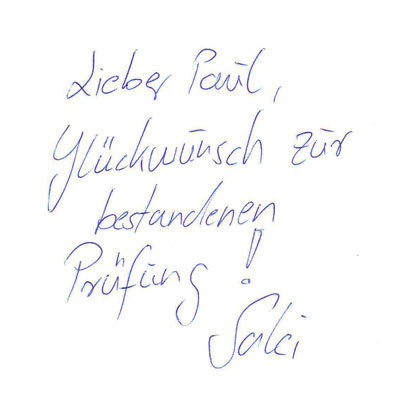 Lieber Paul,
Glückwunsch zur
bestandenen
Prüfung!
Saki